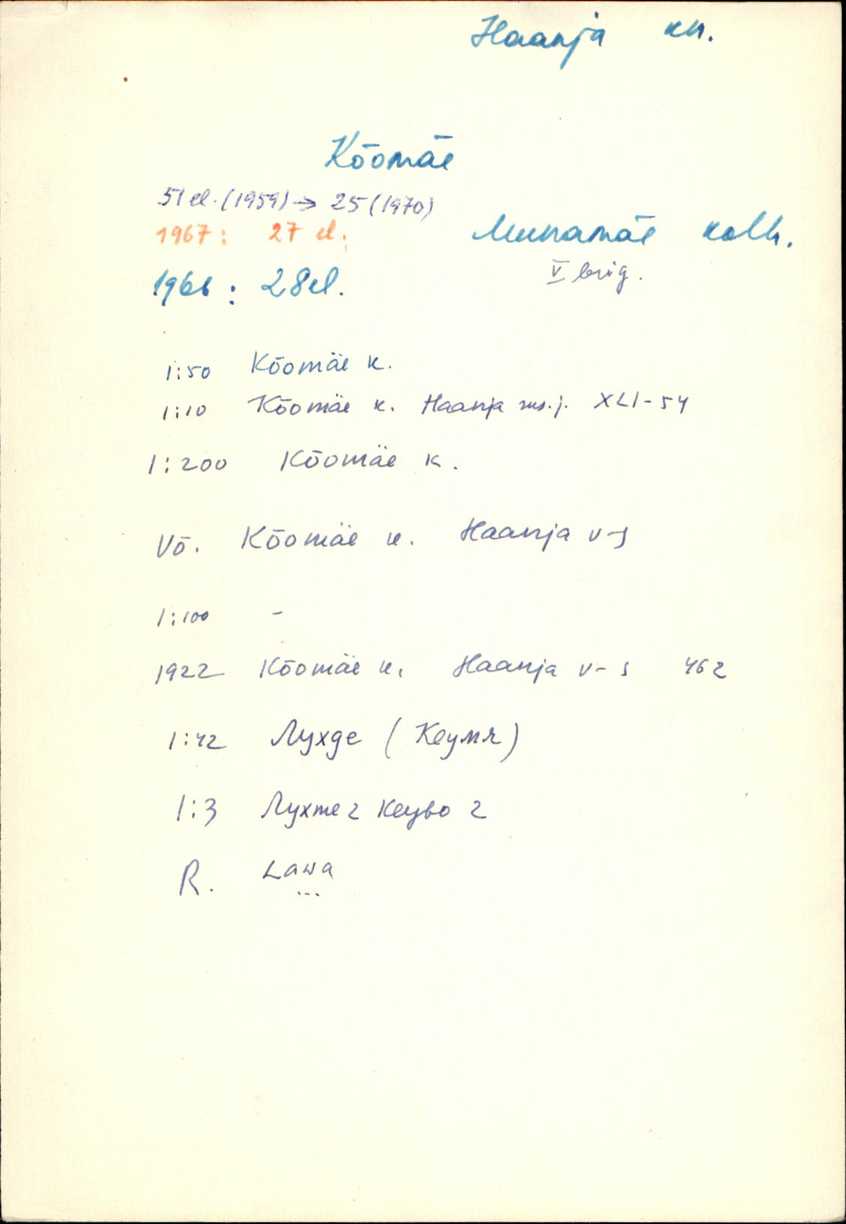 Haanja kn.
Kõomäe
51 el. (1959) → 25 (1970)
1967: 27 el.
Munamäe kolh.
1966: 28 el.
V brig.
1:50 Kõomäe k.
1:10 Kõomäe k. Haanja ms.j. XLI-54
1:200 Kõomäe k.
Võ. Kõomäe k. Haanja v-s
1:100 -
1922 Kõomäe k. Haanja v-s 462
1:42 Лухде (Кеумя)
1:3 Лухте 2 Кеуво 2
R. Lawa